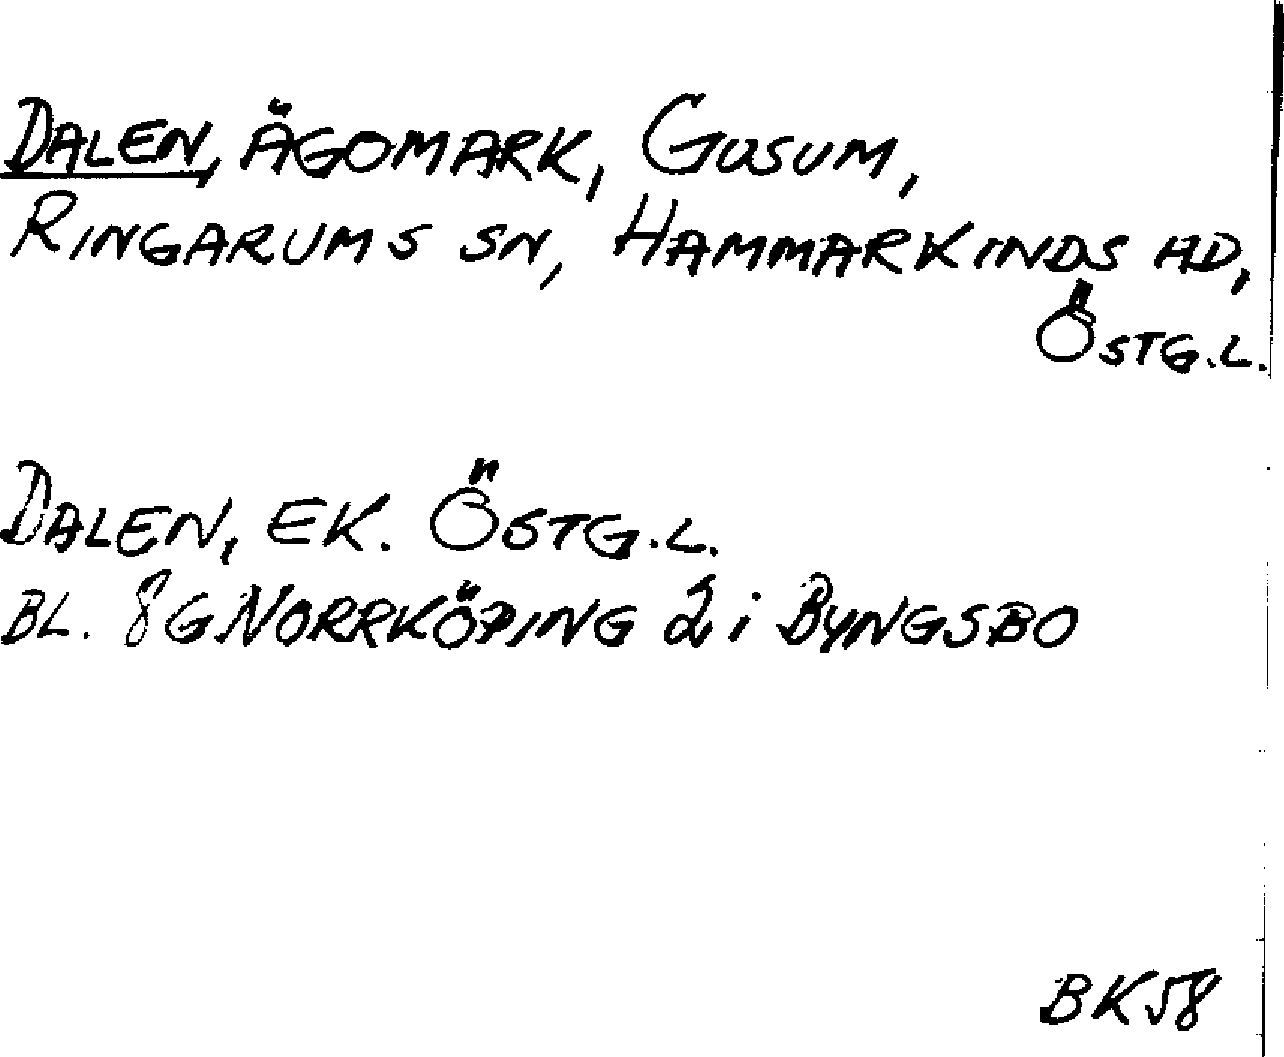 DALEN, ÄGOMARK, GUSUM,
RINGARUMS SN, HAMMARKINDS HD,
ÖSTG.L.
DALEN, EK. ÖSTG.L.
BL. 8G NORRKÖPING 2 i BYNGSBO
BK58